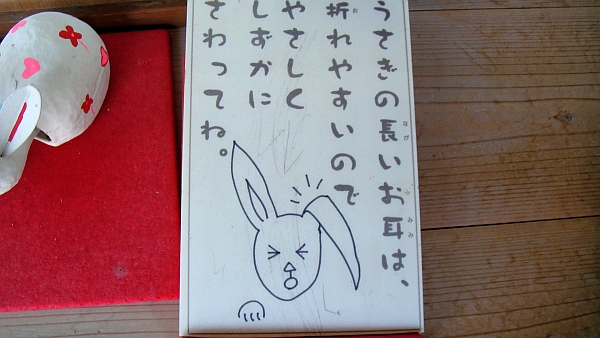 うさぎの長いお耳は、
折れやすいので
やさしく
しずかに
さわってね。